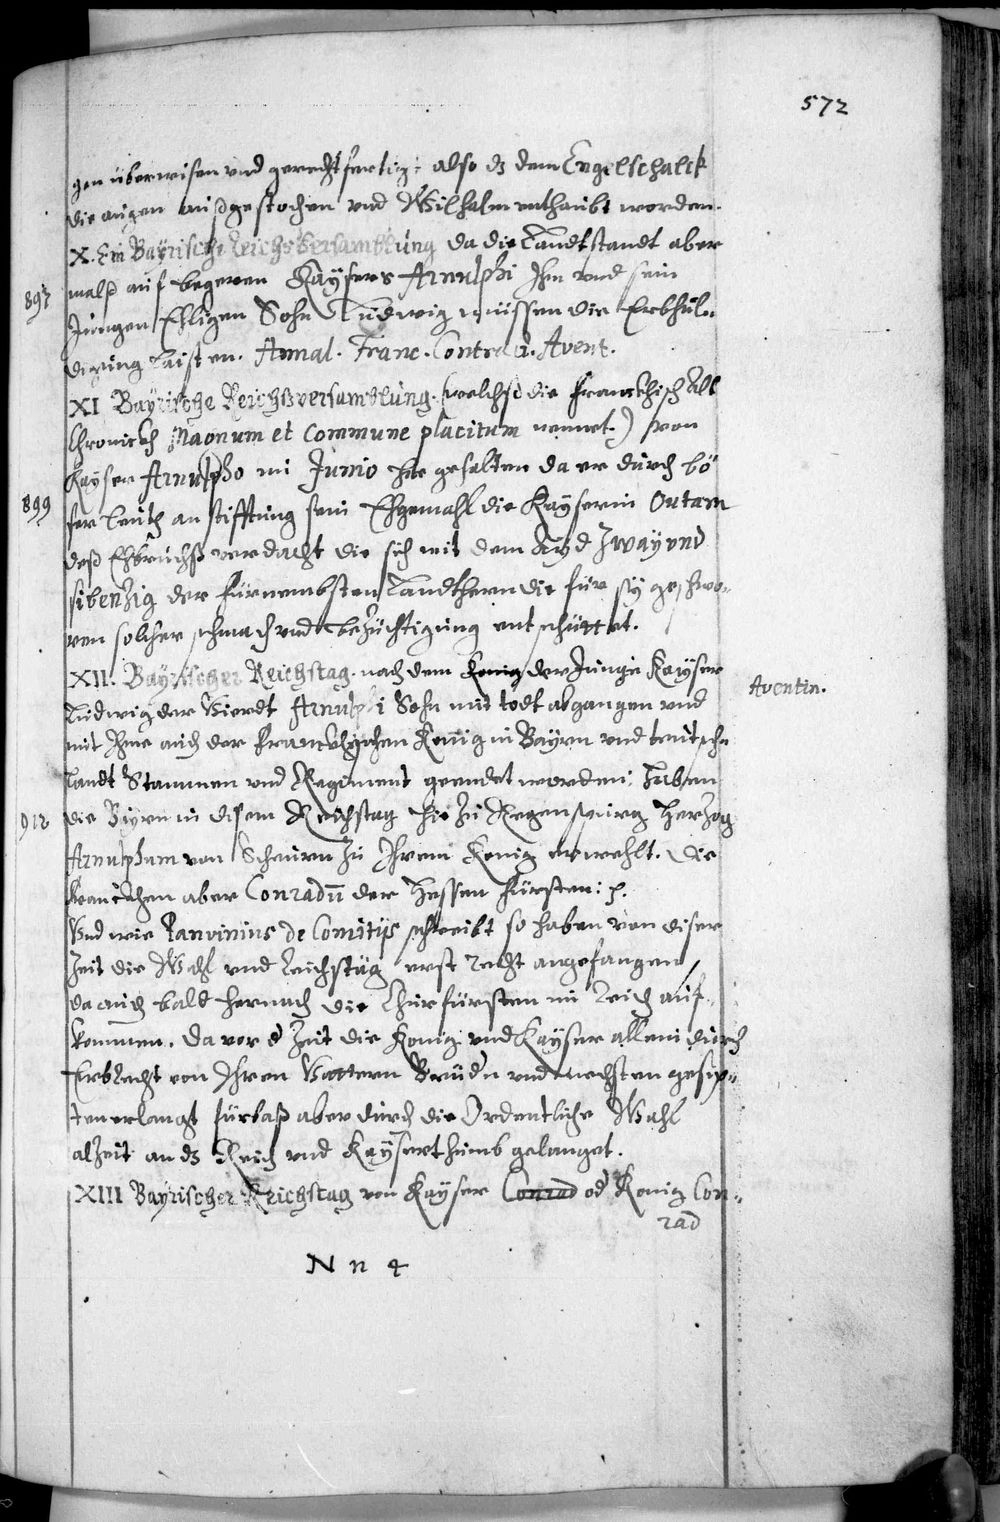 572
gen überwisen und gerechtfertigt also dz dem Engelschalck
die augen außgestochen und Wilhalm enthaubt worden.
X. Ein Bayrische Reichsversamblung da die Landtstandt aber
897
mals auf begeren Kaysers Arnulphi Ihm und sein
Jungen Ehligen Sohn Ludwig müssen die Erbhul„
digung laisten. Annal. Franc. Contract. Avent.
XI Bayrische Reichsversamblung (welchs die Franckhisch Alt
Chronickh Magnum et Commune placitum nennet.) von
Kayser Arnulpho im Junio hie gehalten da er durch bö
899
ser leuth anstifftung sein Ehgemahl die Kayserin Outam
deß Ehbruchß verdacht die sich mit dem Ayd Zway und
sibenzig der fürnembsten Landtherrn die für sy geschwo„
ren solcher schmach und bezüchtigung entschüttet.
XII. Bayrischer Reichstag. nach dem König der Junge Kayser
Aventin.
Ludwig der Vierdt Arnulphi Sohn mit todt abgangen und
mit Ihme auch der Franckhischen König in Bayrn und teutschn
landt Stammen und Regiment geendet worden: haben
912
die Bayrn in disem Reichstag hie zu Regenspurg Herzog
Arnulphum von Scheurn zu Ihrem König erwehlt. Die
Franckhen aber Conradū der Hessen Fürsten: p.
Und wie Panvinius de Comitijs schreibt so haben von diser
Zeit die Wahl und Reichstäg erst recht angefangen
da auch bald hernach die Churfürsten im Reich auf„
kommen. Da vor d' Zeit die König und Kayser allein durch
Erbrecht von Ihren Vattern Brüdn und nechsten gesip„
ten erlangt fürbaß aber durch die Ordentliche Wahl
alzeit an dz Reich und Kayserthumb gelanget.
XIII Bayrischer Reichstag von Kayser Conrad od' König Con„
rad
N n 4